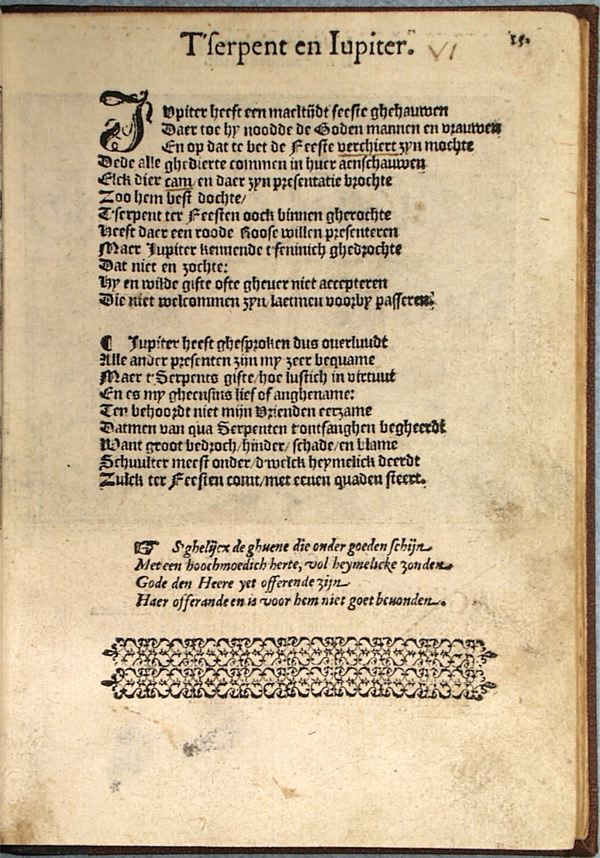 T'serpent en Iupiter.
VI
15.
IVpiter heeft een maeltijdt feeste ghehauwen
Daer toe hy noodde de Goden mannen en vrauwen
En op dat te bet de Feeste verchiert zyn mochte
Dede alle ghedierte commen in huer aenschauwen
Elck dier tam/ en daer zyn presentatie brochte
Zoo hem best dochte/
T'serpent ter Feesten oock binnen gherochte
Heeft daer een roode Roose willen presenteren
Maer Jupiter kennende t'feninich ghedrochte
Dat niet en zochte:
Hy en wilde gifte ofte ghever niet accepteren
Die niet welcommen zyn/ laetmen voorby passeren.
¶ Jupiter heeft ghesproken dus overluudt
Alle ander presenten zijn my zeer bequame
Maer t'Serpents gifte/ hoe lustich in virtuut
En es my gheensins lief of anghename:
Ten behoordt niet mijn Vrienden eerzame
Datmen van qua Serpenten t'ontfanghen begheerdt
Want groot bedroch/ hinder/ schade/ en blame
Schuulter meest onder/ d'welck heymelick deerdt
Zulck ter Feesten comt/ met eenen quaden steert.
☞ S'ghelijcx de ghuene die onder goeden schijn
Met een hoochmoedich herte, vol heymelicke zonden
Gode den Heere yet offerende zijn
Haer offerande en is voor hem niet goet bevonden.